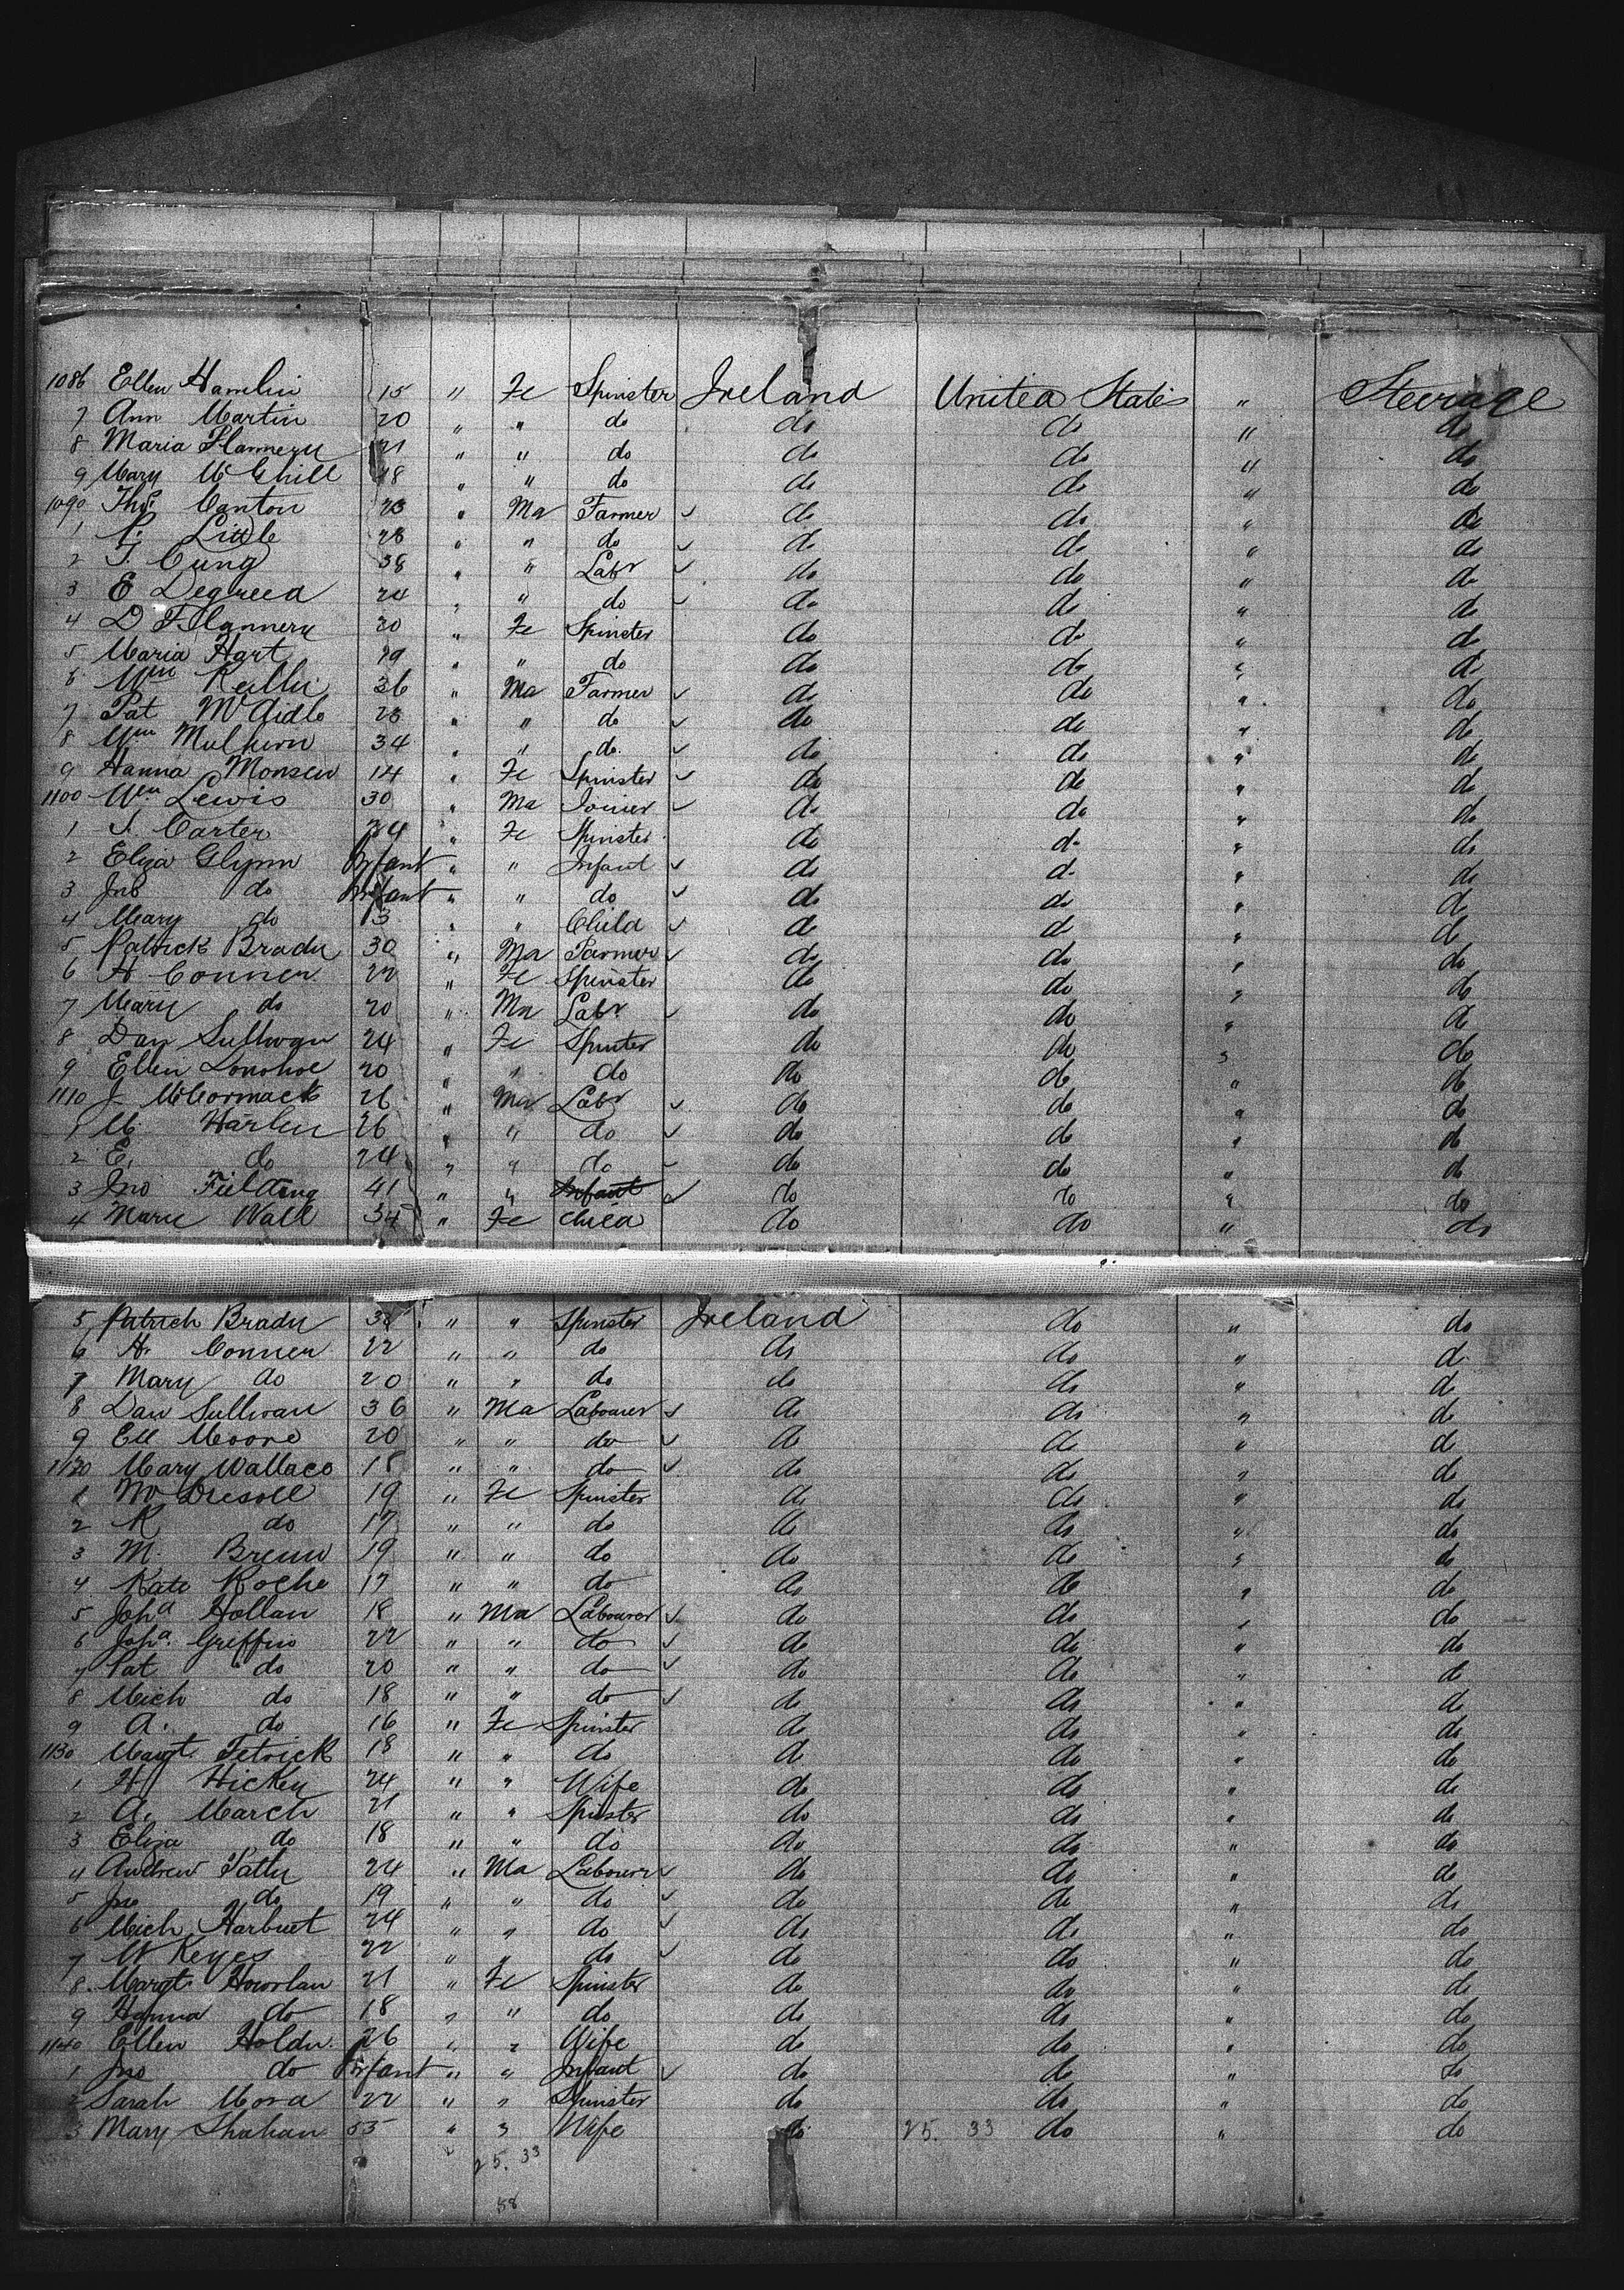 1086 Ellen Hamlin 15 " Fe Spinster Ireland United States " Steerage
7 Ann Martin 20 " " do do do " do
8 Maria Flannery 21 " " do do do " do
9 Mary McGhill 18 " " do do do " do
1090 Thos Canton 23 " Ma Farmer ✓ do do " do
1 P. Little 28 " " do ✓ do do " do
2 T. Cung 38 " " Labr ✓ do do " do
3 E Degreed 24 " " do ✓ do do " do
4 D Flannery 20 " Fe Spinster do do " do
5 Maria Hart 19 " " do do do " do
6 Wm 36 " Ma Farmer ✓ do do " do
7 Pat 28 " " do ✓ do do " do
8 Wm Mulhern 34 " " do ✓ do do " do
9 Hanna Monsen 14 " Fe Spinster ✓ do do " do
1100 Wm Lewis 30 " Ma Joiner ✓ do do " do
1 S. Carter 24 " Fe Spinster do do " do
2 Eliza Glynn Infant " " Infant ✓ do do " do
3 Jno do Infant " " do ✓ do do " do
4 Mary do 13 " " Child ✓ do do " do
5 Patrick Brady 30 " Ma Farmer ✓ do do " do
6 H Conner 22 " Fe Spinster do do " do
7 Mary do 20 " Ma Labr ✓ do do " do
8 Dan Sullivan 24 " Fe Spinster do do " do
9 Ellen Donohoe 20 " " do do do " do
1110 J McCormack 26 " Ma Labr ✓ do do " do
1 M. Harlen 26 " " do ✓ do do " do
2 E. do 24 " " do ✓ do do " do
3 Jno Fielding 41 " " Infant ✓ do do " do
4 Marie Wall 34 " Fe Child do do " do
5 Patrick Brady 38 " " Spinster Ireland do " do
6 H. Conner 22 " " do do do " do
7 Mary do 20 " " do do do " do
8 Dan Sullivan 36 " Ma Labourer ✓ do do " do
9 Ell Moore 20 " " do ✓ do do " do
1120 Mary Wallace 18 " " do ✓ do do " do
1 M Drisoll 19 " Fe Spinster do do " do
2 K do 17 " " do do do " do
3 M. Brenn 19 " " do do do " do
4 Kate Roche 17 " " do do do " do
5 Joha Hollan 18 " Ma Labourer ✓ do do " do
6 Joha Griffin 22 " " do ✓ do do " do
7 Pat do 20 " " do ✓ do do " do
8 Mich do 18 " " do ✓ do do " do
9 A. do 16 " Fe Spinster do do " do
1130 Margt Tetrick 18 " " do do do " do
1 H Hickey 24 " " Wife do do " do
2 A. March 21 " " Spinster do do " do
3 Eliza do 18 " " do do do " do
4 Andrew Patty 24 " Ma Labourer ✓ do do " do
5 Jno do 19 " " do ✓ do do " do
6 Mich Harbuet 24 " " do ✓ do do " do
7 W Keyes 22 " " do ✓ do do " do
8 Margt Howlan 21 " Fe Spinster do do " do
9 Hanna do 18 " " do do do " do
1140 Ellen Holdn. 26 " " Wife do do " do
1 Jno do Infant " " Infant ✓ do do " do
2 Sarah Mora 22 " " Spinster do do " do
3 Mary Shahan 55 " " Wife do 25. 33 do " do
25. 33
58